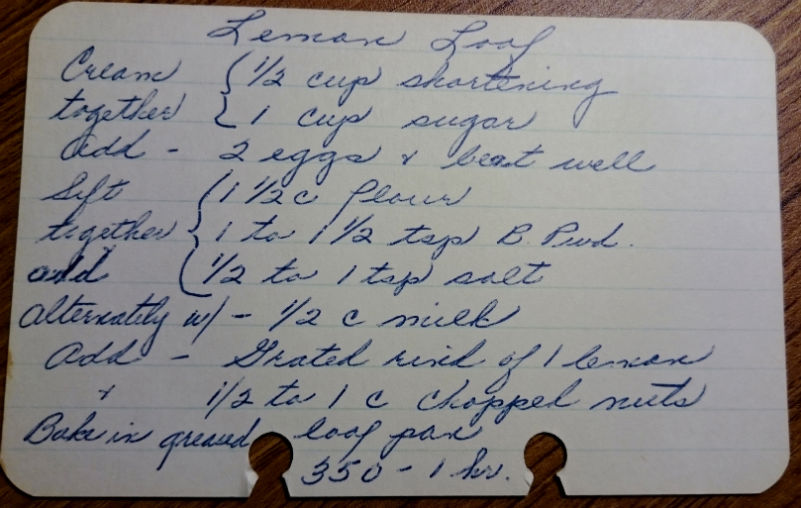 Lemon Loaf
Cream { 1/2 cup shortening
together { 1 cup sugar
Add - 2 eggs & beat well
Sift { 1 1/2 c flour
together { 1 to 1 1/2 tsp B. Pwd.
add { 1/2 to 1 tsp salt
alternately w/ - 1/2 c milk
Add - Grated rind of 1 lemon
& 1/2 to 1 c chopped nuts
Bake in greased loaf pan
350 - 1 hr.